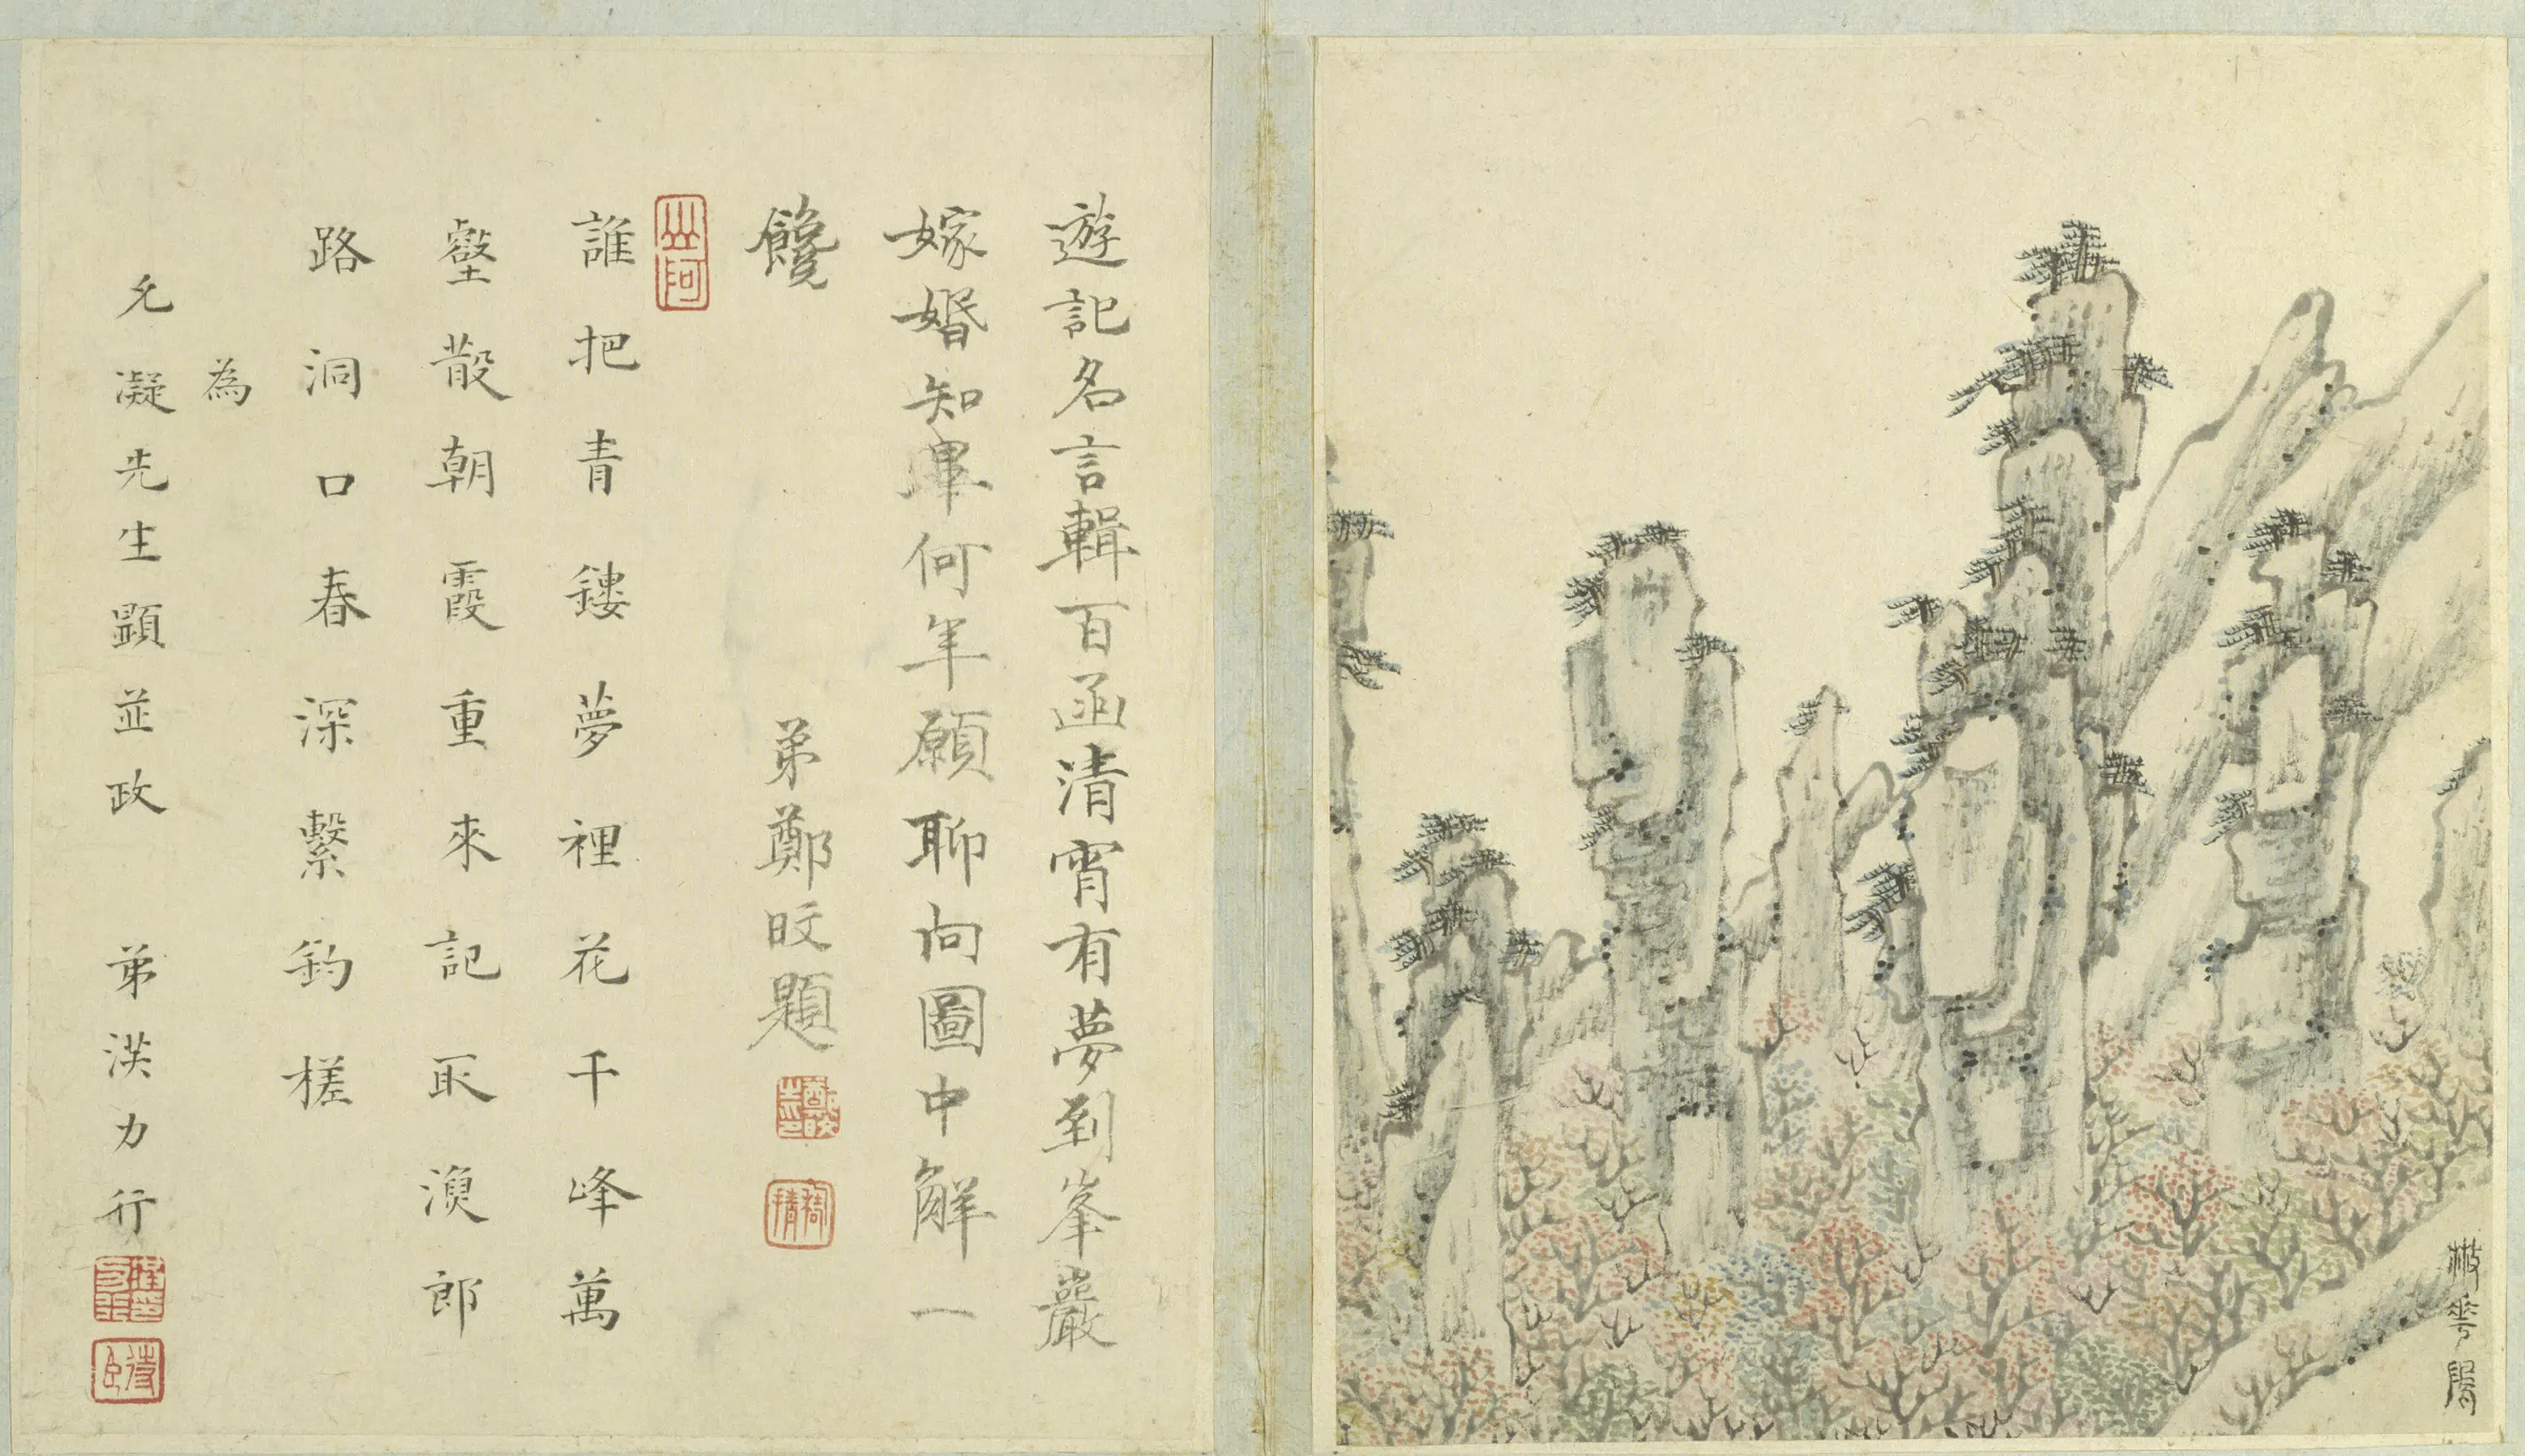 㪔華隖
遊記名言輯百函清宵有夢到峯巖
嫁婚知畢何年願聊向圖中解一
饞
弟鄭旼題
誰把青鏤夢裡花千峰萬
壑散朝霞重來記取漁郎
路洞口春深繫釣槎
為
允凝先生題並政 弟洪力行